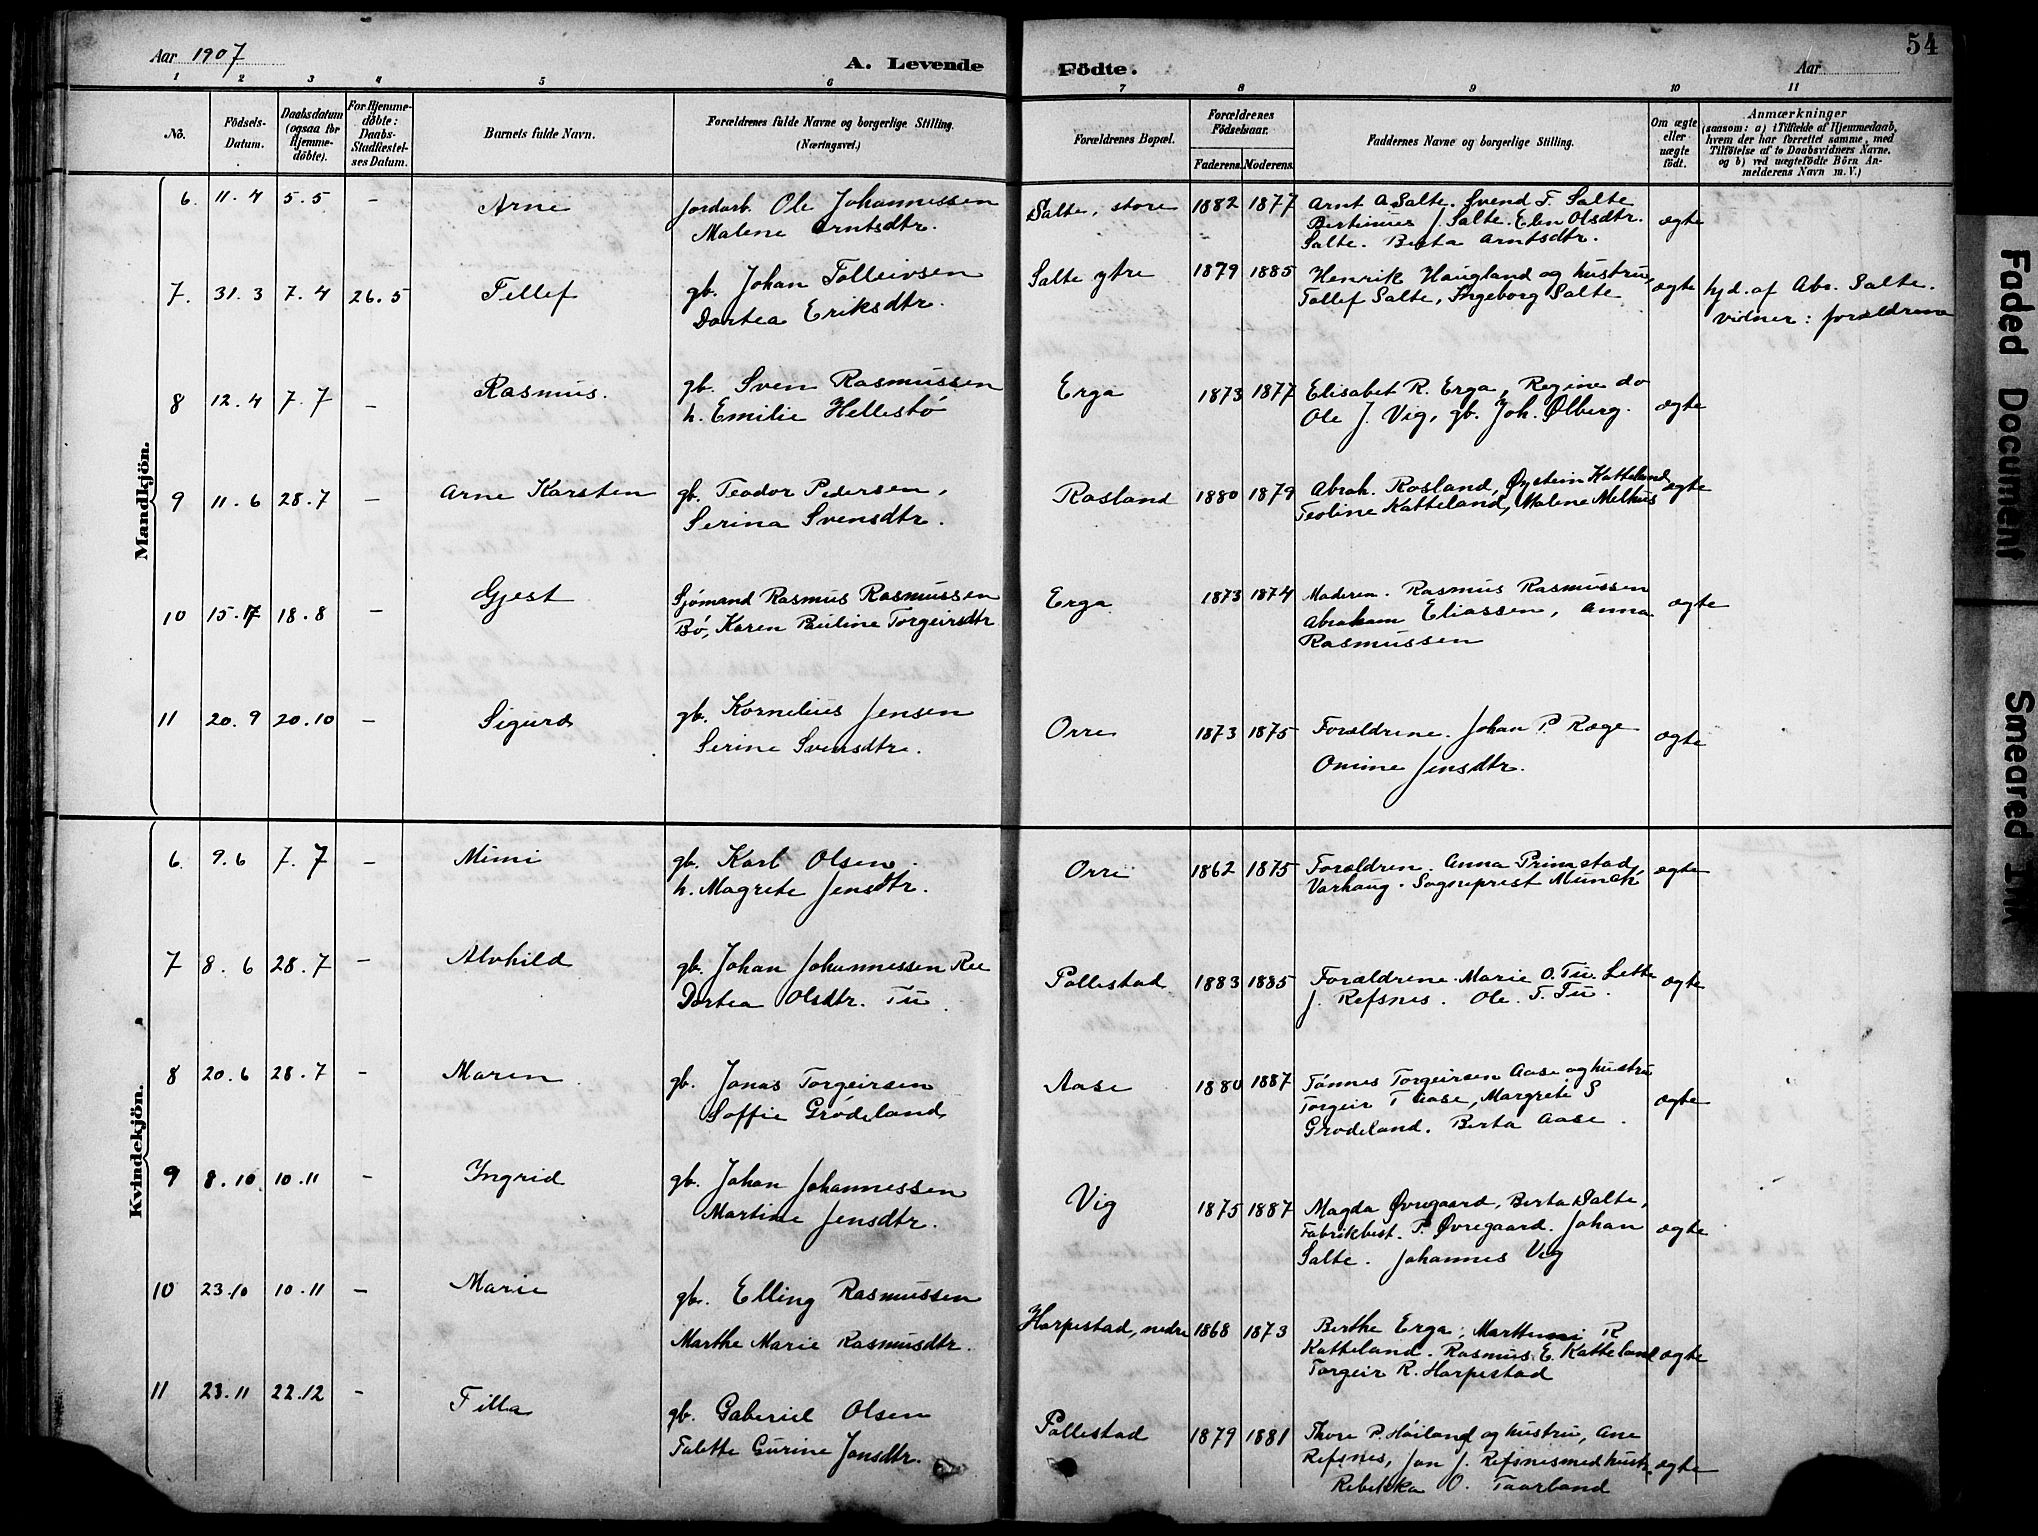 54
Aar 1907
A. Levende Födte.
Aar
1 2 3 4 5 6 7 8 9 10 11
No.
Födsels-
Datum.
Daabsdatum
(ogsaa for
Hjemme-
döbte).
For Hjemme-
döbte:
Daabs-
Stadfæstel-
ses Datum.
Barnets fulde Navn.
Forældrenes fulde Navne og borgerlige Stilling.
(Næringsvei.)
Forældrenes Bopæl.
Forældrenes
Födselsaar.
Faderens. Moderens.
Faddernes Navne og borgerlige Stilling.
Om ægte
eller
uægte
födt.
Anmærkninger
(saasom: a) i Tilfælde af Hjemmedaab,
hvem der har forrettet samme, med
Tilföielse af to Daabsvidners Navne.
og b) ved uægtefödte Börn An-
melderens Navn m. V.)
Mandkjön.
6. 11.4 5.5 - Arne
Jordarb. Ole Johannessen
Malene Arntsdtr.
Salte, store 1882 1877
Arnt A Salte. Svend T. Salte
Bertinius J. Salte. Elen Olsdtr.
Salte. Berta Arntsdtr.
ægte
7. 31.3 7.4 26.5 Tellef
gb. Johan Tolleivsen
Dortea Eriksdtr.
Salte ytre 1879 1885
Henrik Haugland og hustru,
Tollef Salte, Ingeborg Salte
ægte
hjd. af Abr. Salte.
vidner: forældrene
8 12.4 7.7 - Rasmus.
gb. Sven Rasmussen
h. Emilie Hellestø
Erga 1873 1877
Elisabet R. Erga, Regine do
Ole J. Vig, gb. Joh. Ølberg.
ægte
9 11.6 28.7 - Arne Karsten
gb. Teodor Pedersen,
Serina Svensdtr.
Rosland 1880 1879
Abrah. Rosland, Øystein Katteland,
Teoline Katteland, Malene Melhus
ægte
10 15.7 18.8 - Gjest
Sjømand Rasmus Rasmussen
Bø, Karen Pauline Torgeirsdtr
Erga 1873 1874
Moderen. Rasmus Rasmussen
Abraham Eliassen, Anna
Rasmussen
ægte
11 20.9 20.10 - Sigurd
gb. Kornelius Jensen
Serine Svensdtr.
Orre 1873 1875
Forældrene. Johan P. Ræge
Onine Jensdtr.
ægte
Kvindekjön.
6. 9.6 7.7 - Mimi
gb. Karl Olsen.
h. Magrete Jensdtr.
Orre 1862 1875
Forældren. Anna Primstad,
Varhaug. Sogneprest Munch
ægte
7 8.6 28.7 - Alvhild
gb. Johan Johannessen Ree
Dortea Olsdtr. Tu
Pollestad 1883 1885
Forældrene. Marie O. Tu.
J. Refsnes. Ole. T. Tu.
ægte
8 20.6 28.7 - Maren
gb. Jonas Torgeirsen
Soffie Grødeland
Aase 1880 1887
Tønnes Torgeirsen Aase og hustru
Torgeir T Aase, Margrete S
Grødeland. Berta Aase.
ægte
9 8.10 10.11 - Ingrid
gb. Johan Johannessen
Martine Jensdtr.
Vig 1875 1887
Magda Øvregaard, Berta Salte,
Fabrikbest. P. Øvregaard. Johan
Salte. Johannes Vig
ægte
10 23.10 10.11 - Marie
gb. Elling Rasmussen
Marthe Marie Rasmusdtr.
Harpestad, nedre 1868 1873
Berthe Erga, R
Katteland. Rasmus E. Katteland
Torgeir R. Harpestad
ægte
11 23.11 22.12 - Tilla
gb. Gaberiel Olsen
Talette Gurine Jonsdtr.
Pollestad 1879 1881
Thore P. Høiland og hustru, Ane
Refsnes, Jon J. Refsnes med hustr.
Rebekka O. Taarland
ægte
Faded Document
Smeared Ink